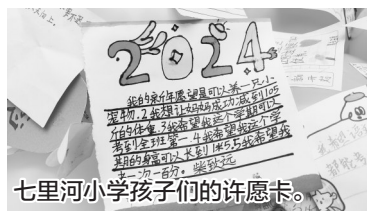 2024
我的新年愿望是可以养一只小
宠物.2我想让妈妈成功减到105
斤的体重.3我希望我这个学期可以
考到全班第一.4我希望我这个学
期的身高可以长到145.5我希望我
考一次一百分。柴致远
七里河小学孩子们的许愿卡。